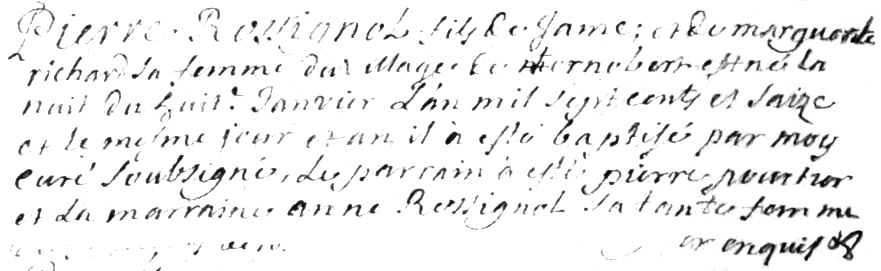 Pierre Rossignol fils de Jame; et de marguerite
richard sa femme du village de est né la
nuit du huit.e Janvier L'an mil sept cents et saize
et le mesme jour et an il à esté baptisé par moy
curé soubsigné, Le parrain à esté pierre
et La marraine anne Rossignol sa tante femme
enquis